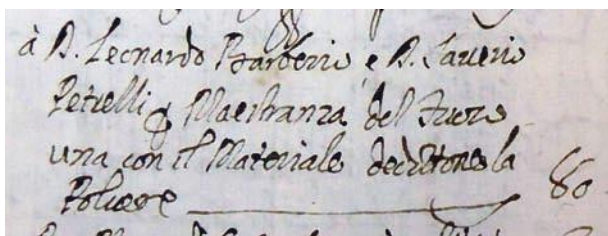 à D. Leonardo Barberio e D. Saverio
Petrelli p Maestranza del
una con il Materiale la
Polvere 80